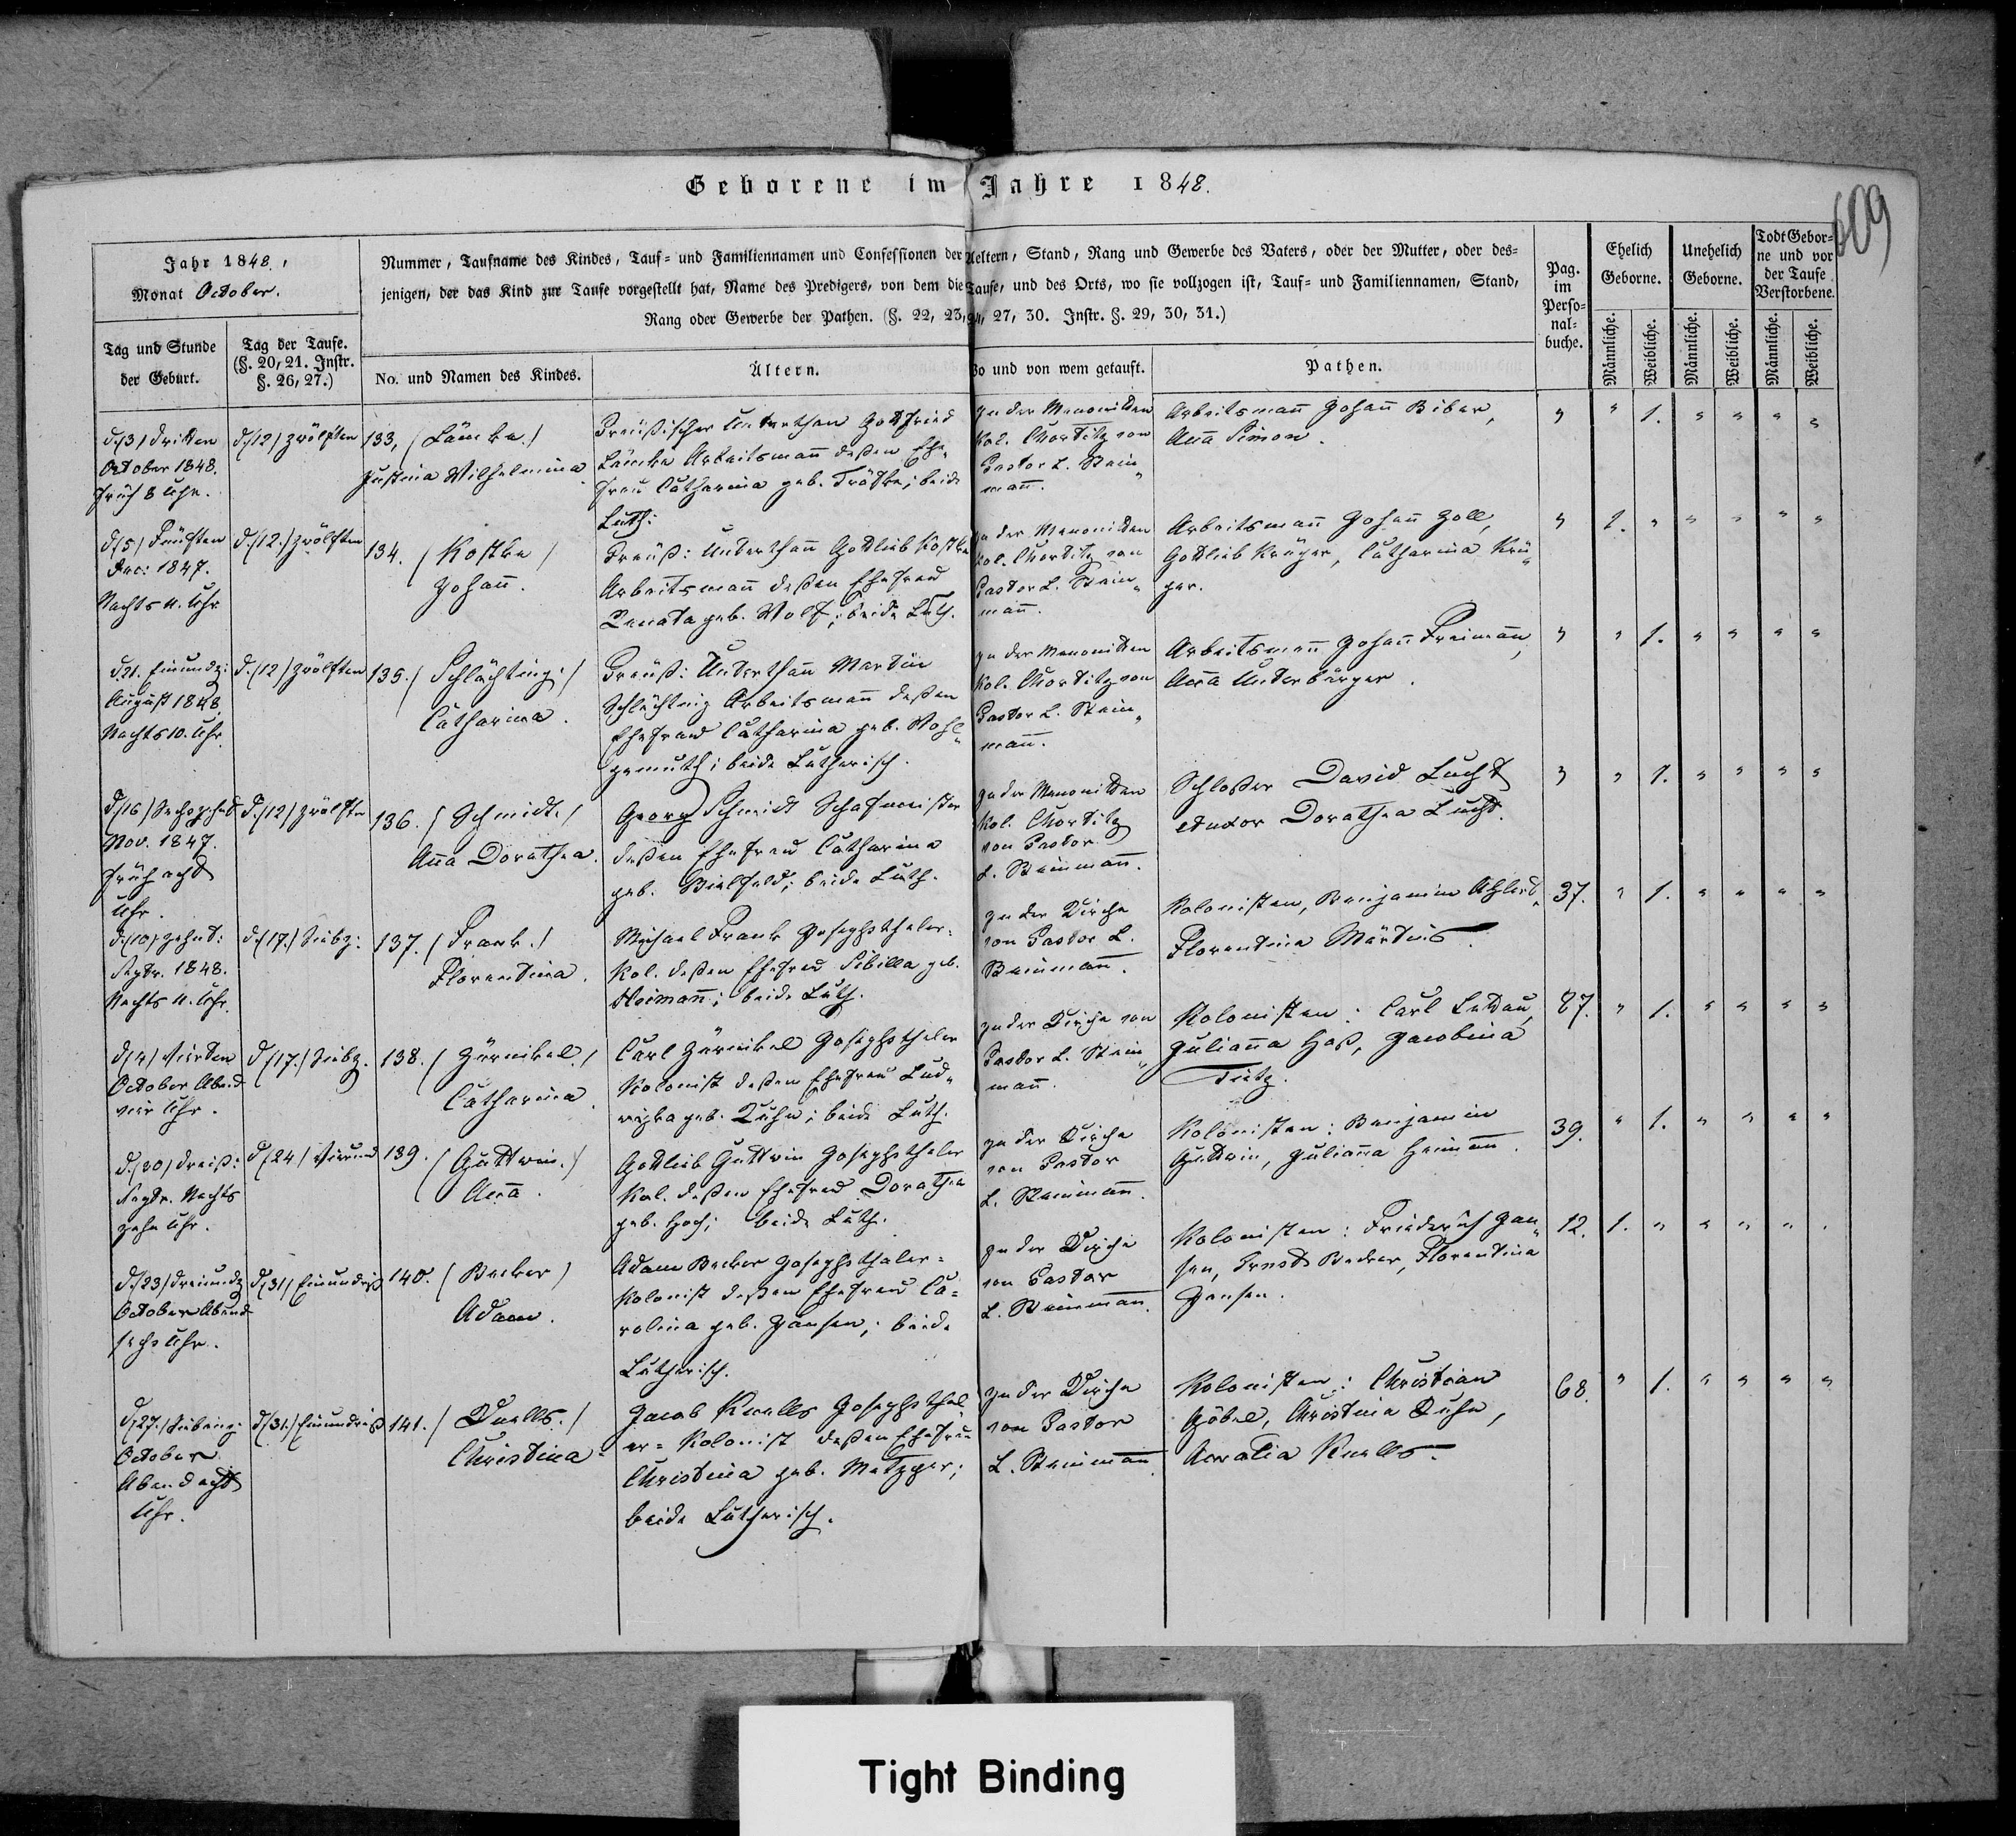 Geborene im Jahre 1848.
609
Jahr 1848,
Monat October.
Tag und Stunde
der Geburt.
Tag der Taufe.
(§. 20, 21. Instr.
§. 26, 27.)
Nummer, Taufname des Kindes, Tauf- und Familiennamen und Confessionen der Aeltern, Stand, Rang und Gewerbe des Vaters, oder der Mutter, oder des-
jenigen, der das Kind zur Taufe vorgestellt hat, Name des Predigers, von dem die Taufe, und des Orts, wo sie vollzogen ist, Tauf- und Familiennamen, Stand,
Rang oder Gewerbe der Pathen. (§. 22, 23, 24, 27, 30. Instr. §. 29, 30, 31.)
No. und Namen des Kindes.
Ältern.
Wo und von wem getauft.
Pathen.
Pag.
im
Perso-
nal-
buche.
Ehelich
Geborne.
Unehelich
Geborne.
Todt Gebor-
ne und vor
der Taufe
Verstorbene.
Männliche.
Weibliche.
Männliche.
Weibliche.
Männliche.
Weibliche.
d. (3) dritten
October 1848.
früh 8 Uhr.
d. (12) zwölften
133, (Lämke.)
Justina Wilhelmina
Preußischer Unterthan Gottfried
Lämke Arbeitsman̄ deßen Ehe„
frau Catharina geb. ; beide
Luth:
In der Menoniten
Kol. Chortitz von
Pastor L. Stein„
man̄.
Arbeitsman̄ Johan̄ Biber,
An̄a Simon.
" " 1. " " " "
d. (5) Fünften
Dec: 1847.
Nachts 11. Uhr
d. (12.) zwölften
134. (Kostke)
Johan̄.
Preuß: Unterthan̄ Gottlieb Kostke
Arbeitsman̄ deßen Ehefrau
Renata geb. Wolf; beide Luth.
In der Menoniten
Kol. Chortitz von
Pastor L. Stein„
man̄.
Arbeitsman̄ Johan̄ Zoll,
Gottlieb Krüger, Catharina Krü„
ger.
" 1. " " " " "
d. 21. Einundz:
August 1848.
Nachts 10. Uhr.
d. (12) zwölften
135. (Schlächting.)
Catharina.
Preuß: Unterthan̄ Martin
Schlächting Arbeitsman̄ deßen
Ehefrau Catharina geb. Wohl„
gemuth; beide Lutherisch.
In der Menoniten
Kol. Chortitz von
Pastor L. Stein„
man̄.
Arbeitsman̄ Johan̄ Freiman̄,
An̄a Unterbürger.
" " 1. " " " "
d. (16) Sechszehnt
Nov. 1847.
früh acht
Uhr.
d. (12) zwölften
136. (Schmidt.)
An̄a Dorothea.
Georg Schmidt Schafmeister
deßen Ehefrau Catharina
geb. Bielfeld; beide Luth.
In der Menoniten
Kol. Chortitz
von Pastor
L. Steinman̄.
Schloßer David Lucht
et uxor Dorathea Lucht.
" " 1. " " " "
d. (10) zehnt:
Septr. 1848.
Nachts 11. Uhr.
d. (17.) Siebz:
137. (Frank.)
Florentina.
Michael Frank Josephsthaler-
Kol. deßen Ehefrau Sibilla geb.
Heiman̄; beide Luth.
In der Kirche
von Pastor L.
Steinman̄.
Kolonisten, Benjamin Ahlert,
Florentina Märtins.
37. " 1. " " " "
d. (4) Vierten
October Abend
vier Uhr.
d. (17.) Siebz.
138. (Zärnikel.)
Catharina.
Carl Zärnikel Josephsthaler
Kolonist deßen Ehefrau Lud„
wika geb. Kuhn; beide Luth.
In der Kirche von
Pastor L. Stein„
man̄.
Kolonisten: Carl Lettau,
Julian̄a Haß, Jacobina
Tietz.
87. " 1. " " " "
d. (30) dreiß:
Septr. Nachts
zehn Uhr.
d. (24) Vierund
139. (Guttwin.)
An̄a.
Gottlieb Guttwin Josephsthaler
Kol. deßen Ehefrau Dorathea
geb. Hoch; beide Luth.
In der Kirche
von Pastor
L. Steinman̄.
Kolonisten: Benjamin
Guttwin, Julian̄a Heiman̄.
39. " 1. " " " "
d. (23) dreiundz
October Abend
sechs Uhr.
d. (31) Einunddreiß
140. (Becker)
Adam.
Adam Becker Josephsthaler-
Kolonist deßen Ehefrau Ca-
rolina geb. Jansen; beide
Lutherisch.
In der Kirche
von Pastor
L. Steinman̄.
Kolonisten: Friederich Jan„
sen, Ernst Becker, Florentina
Jansen.
12. 1. " " " " "
d. (27.) Siebenz:
October
Abend acht
Uhr.
d. (31.) Einunddreiß
141. (Knells.)
Christina
Jacob Knells Josephsthal
er-Kolonist deßen Ehefrau
Christina geb. Metzger;
beide Lutherisch.
In der Kirche
von Pastor
L. Steinman̄
Kolonisten: Christian
Göbel, Christina Kuhn,
Knells.
68. " 1. " " " "
Tight Binding